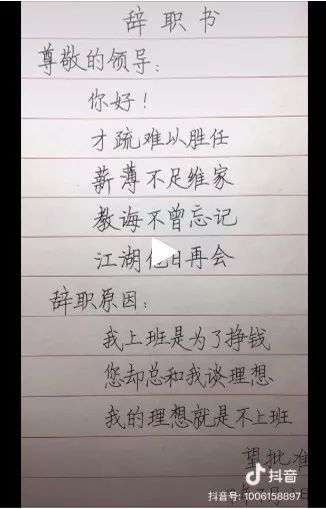 辞职书
尊敬的领导：
你好！
才疏难以胜任
薪薄不足维家
教诲不曾忘记
江湖他日再会
辞职原因：
我上班是为了挣钱
您却总和我谈理想
我的理想就是不上班
望批准
抖音
抖音号：1006158897